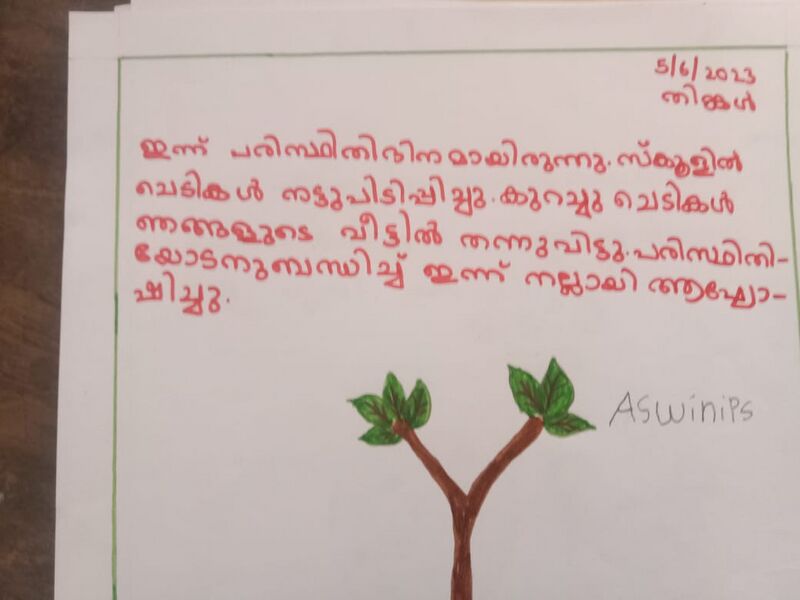 5/6/2023
തിങ്കൾ
ഇന്ന് പരിസ്ഥിതിദിനമായിരുന്നു. സ്കൂളിൽ
ചെടികൾ നട്ടുപിടിപ്പിച്ചു. കുറച്ചു ചെടികൾ
ഞങ്ങളുടെ വീട്ടിൽ തന്നുവിട്ടു. പരിസ്ഥിതി-
യോടനുബന്ധിച്ച് ഇന്ന് നല്ലായി ആഘോ-
ഷിച്ചു.
ASwiniPS